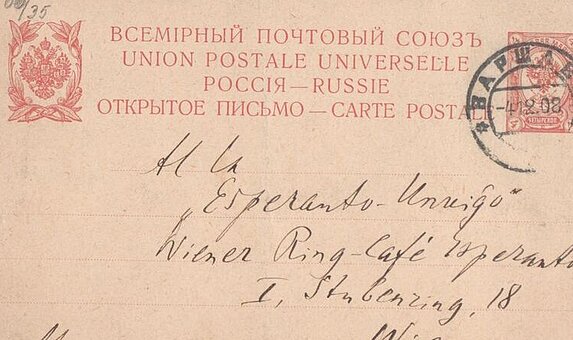 35
ВСЕМІРНЫЙ ПОЧТОВЫЙ СОЮЗЪ
UNION POSTALE UNIVERSELLE
РОССІЯ — RUSSIE
ОТКРЫТОЕ ПИСЬМО — CARTE POSTALE
ВАРША
-4.12.08
ЧЕТЫРЕ КОП
Al la
„Esperanto-Unuigo"
Wiener Ring-Café Esperanto
I, Stubenring, 18